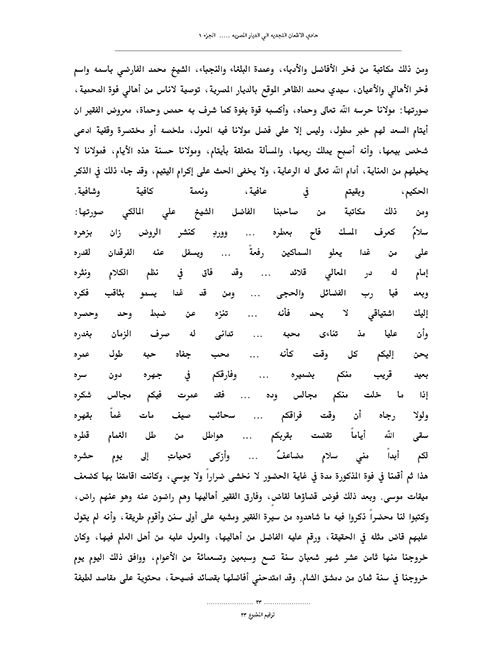 حادي الأظعان النجديه الي الديار المصريه ..... الجزء ١
ومن ذلك مكاتبة من فخر الأفاضل والأدباء، وعمدة البلغاء والنجباء، الشيخ محمد الفارضي باسمه واسم
فخر الأهالي والأعيان، سيدي محمد الظاهر الموقع بالديار المصرية، توصية لاناس من أهالي فوة المحمية،
صورتها: مولانا حرسه الله تعالى وحماه، وأكسبه قوة بفوة كما شرف به حمص وحماة، معروض الفقير ان
أيتام السعد لهم خبر مطول، وليس إلا على فضل مولانا فيه المعول، ملخصه أو مختصرة وقفية ادعى
شخص بيعها، وأنه أصبح يملك ريعها، والمسألة متعلقة بأيتام، ومولانا حسنة هذه الأيام، فمولانا لا
يخيلهم من العناية، أدام الله تعالى له الرعاية، ولا يخفى الحث على إكرام اليتيم، وقد جاء ذلك في الذكر
الحكيم، وبقيتم في عافية، ونعمة كافية وشافية.
ومن ذلك مكاتبة من صاحبنا الفاضل الشيخ علي المالكي صورتها:
سلامٌ كعرف المسك فاح بعطره ... وورد كنشر الروض زان بزهره
على من غدا يعلو السماكين رفعةً ... ويسفل عنه الفرقدان لقدره
إمام له در المعالي قلائد ... وقد فاق في نظم الكلام ونثره
وبعد فيا رب الفضائل والحجى ... ومن قد غدا يسمو بثاقب فكره
إليك اشتياقي لا يحد فأنه ... تنزه عن ضبط وحد وحصره
وأن عليا مذ تناءى محبه ... تدانى له صرف الزمان بغدره
يحن إليكم كل وقت كأنه ... محب جفاه حبه طول عمره
بعيد قريب منكم بضميره ... وفارقكم في جهره دون سره
إذا ما خلت منكم مجالس وده ... فقد عمرت فيكم مجالس شكره
ولولا رجاه أن وقت فراقكم ... سحائب صيف مات غماً بقهره
سقى الله أياماً تقضت بقربكم ... هواطل من طل الغمام قطره
لكم أبداً مني سلام مضاعفٌ ... وأزكى تحياتٍ إلى يوم حشره
هذا ثم أقمنا في فوة المذكورة مدة في غاية الحضور لا نخشى ضراراً ولا بوسي، وكانت اقامتنا بها كضعف
ميقات موسى. وبعد ذلك فوض قضاؤها لقاضٍ، وفارق الفقير أهاليها وهم راضون عنه وهو عنهم راض،
وكتبوا لنا محضراً ذكروا فيه ما شاهدوه من سيرة الفقير ومشيه على أولى سنن وأقوم طريقة، وأنه لم يتول
عليهم قاض مثله في الحقيقة، ورقم عليه الفاضل من أهاليها، والمعول عليه من أهل العلم فيها، وكان
خروجنا منها ثامن عشر شهر شعبان سنة تسع وسبعين وتسعمائة من الأعوام، ووافق ذلك اليوم يوم
خروجنا في سنة ثمان من دمشق الشام. وقد امتدحني أفاضلها بقصائد فصيحة، محتوية على مقاصد لطيفة
...................... ٢٣ ......................
ترقيم المشروع ٢٣